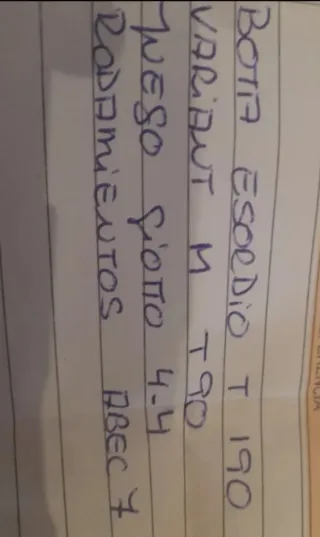 BOTA ESORDIO T 190
VARIANT M T90
YUEGO GIOTTO 4-4
RODAMIENTOS ABEC 7